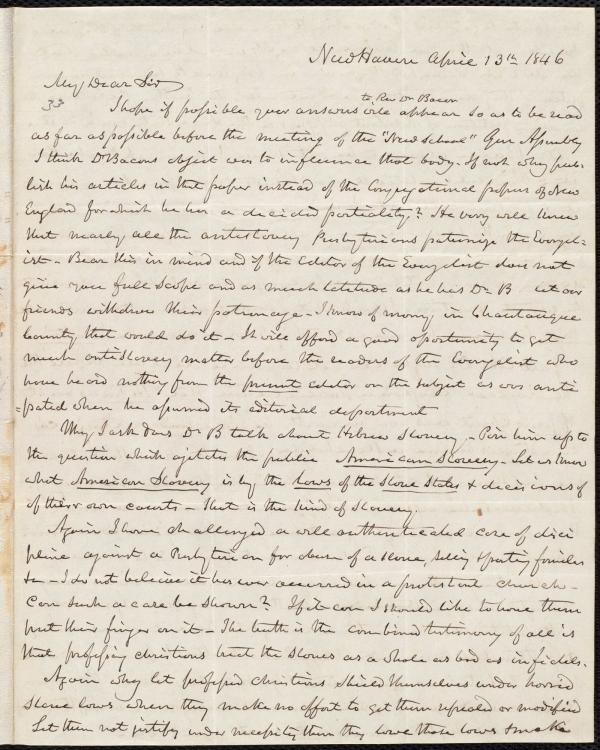 New Haven April 13th 1846
My Dear Sir
33
to Rev Dr Bacon
I hope if possible your answer will appear so as to be read
as far as possible before the meeting of the "New School" Gen Assembly
I think Dr Bacons object was to influence that body. If not why pub-
lish his articles in that paper instead of the Congregational papers of New
England for which he has a decided partiality? He very well knew
that nearly all the antislavery Presbyterians patronize the Evangel-
ist - Bear this in mind and if the Editor of the Evangelist does not
give you full scope and as much latitude as he has Dr B let our
friends withdraw their patronage - I know of many in Chautauque
County that would do it - It will afford a good oportunity to get
much antislavery matter before the readers of the Evangelist who
have heard nothing from the present editor on the subject as was anti
=pated when he assumed its editorial department
Why I ask does Dr B talk about Hebrew Slavery - Pin him up to
the question which agitates the public American Slavery - Let us know
what American Slavery is by the Laws of the Slave States & decisions of
of their own courts - that is the kind of Slavery.
Again I have challenged a well authenticated case of disci
pline against a Presbyterian for abuse of a slave, selling & parting families
&c - I do not believe it has ever occurred in a protestant church -
Can such a case be shown? If it can I should like to have them
put their finger on it - The truth is the combined testimony of all is
that professing christians treat the slaves as a whole as bad as infidels.
Again why let professed christians shield themselves under horrid
slave laws when they make no effort to get them repealed or modified
Let them not justify under necessity then they love those laws & make